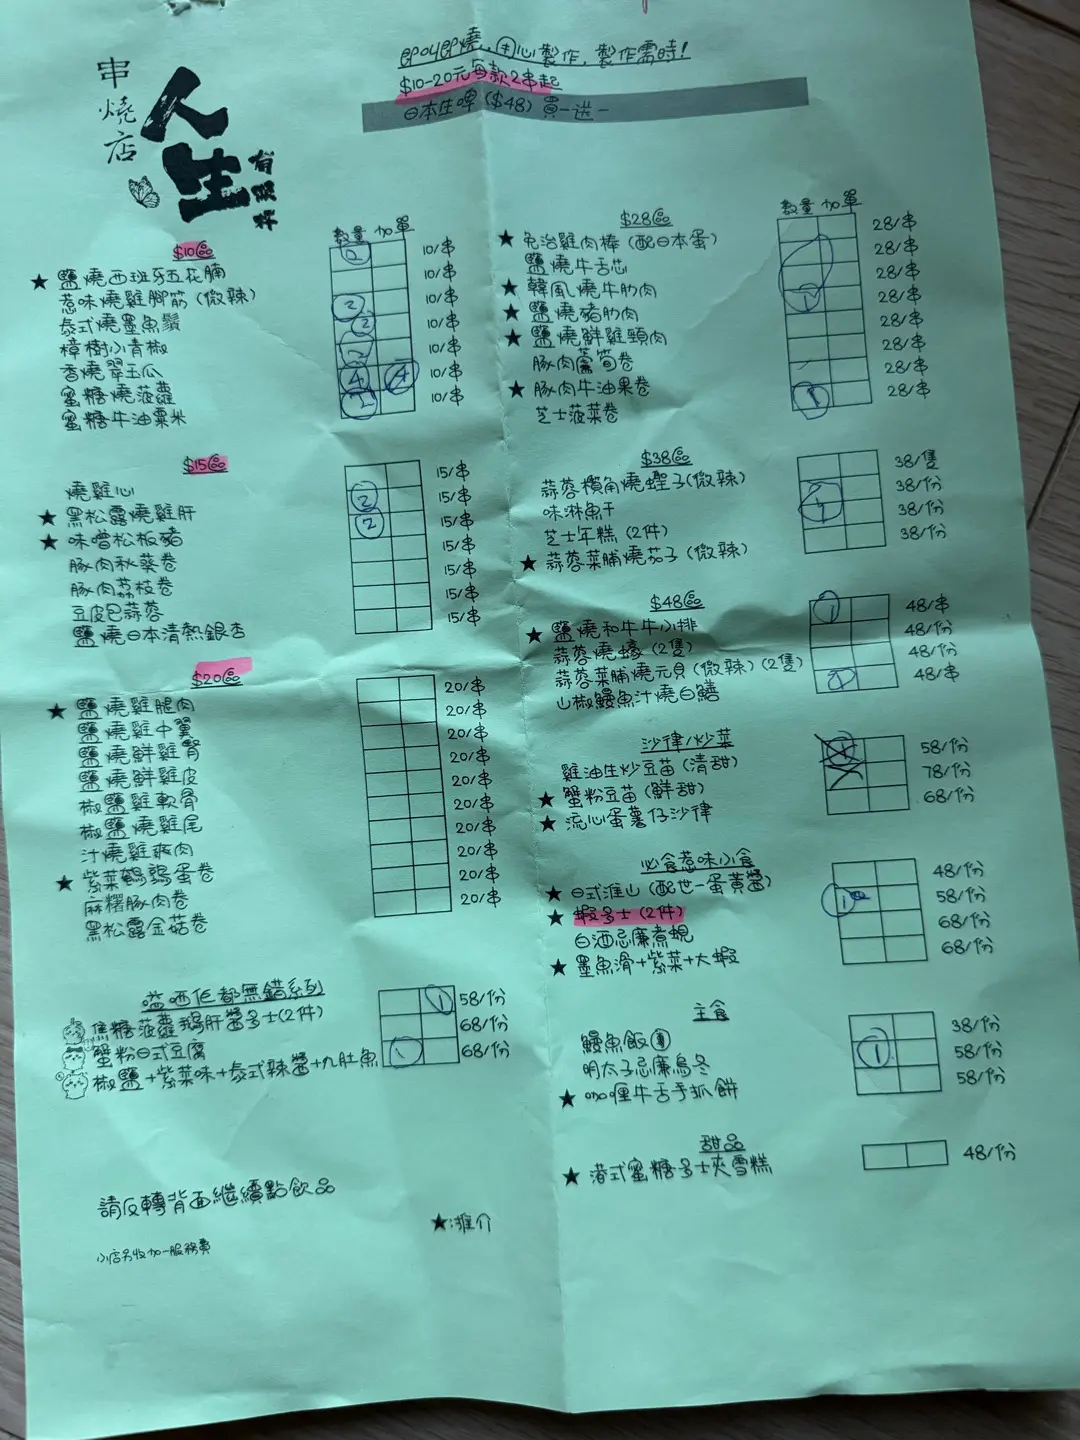 即叫即燒,用心製作,製作需時!
$10-20元每款2串起
日本生啤($48)買一送一
串燒店
人生
有限時
$10區
數量 加單
★ 鹽燒西班牙五花腩 10/串
惹味燒雞腳筋(微辣) 10/串
泰式燒墨魚鬚 10/串
樟樹小青椒 10/串
香燒翠玉瓜 10/串
蜜糖燒菠蘿 10/串
蜜糖牛油粟米 10/串
2
2
2
2
4 4
2
$15區
燒雞心 15/串
★ 黑松露燒雞肝 15/串
★ 味噌松板豬 15/串
豚肉秋葵卷 15/串
豚肉荔枝卷 15/串
豆皮包蒜蓉 15/串
鹽燒日本清熱銀杏 15/串
2
2
$20區
★ 鹽燒雞腿肉 20/串
鹽燒雞中翼 20/串
鹽燒鮮雞腎 20/串
鹽燒鮮雞皮 20/串
椒鹽雞軟骨 20/串
椒鹽燒雞尾 20/串
汁燒雞爽肉 20/串
★ 紫菜鵪鶉蛋卷 20/串
麻糬豚肉卷 20/串
黑松露金菇卷 20/串
嗌晒佢都無錯系列
焦糖菠蘿鵝肝醬多士(2件) 58/份
蟹粉日式豆腐 68/份
椒鹽+紫菜味+泰式辣醬+九肚魚 68/份
1
1
請反轉背面繼續點飲品
小店另收加一服務費
★:推介
$28區
數量 加單
★ 免治雞肉棒(配日本蛋) 28/串
鹽燒牛舌芯 28/串
★ 韓風燒牛肋肉 28/串
★ 鹽燒豬肋肉 28/串
★ 鹽燒鮮雞頸肉 28/串
豚肉蘆筍卷 28/串
★ 豚肉牛油果卷 28/串
芝士菠菜卷 28/串
1
1
$38區
蒜蓉欖角燒蟶子(微辣) 38/隻
味淋魚干 38/份
芝士年糕(2件) 38/份
★ 蒜蓉菜脯燒茄子(微辣) 38/份
1
$48區
★ 鹽燒和牛牛小排 48/串
蒜蓉燒蠔(2隻) 48/份
蒜蓉菜脯燒元貝(微辣)(2隻) 48/份
山椒鰻魚汁燒白鱔 48/串
1
1
沙律/炒菜
雞油生炒豆苗(清甜) 58/份
★ 蟹粉豆苗(鮮甜) 78/份
★ 流心蛋薯仔沙律 68/份
必食惹味小食
★ 日式淮山(配世一蛋黃醬) 48/份
★ 蝦多士(2件) 58/份
白酒忌廉煮蜆 68/份
★ 墨魚滑+紫菜+大蝦 68/份
1
主食
鰻魚飯 38/份
明太子忌廉烏冬 58/份
★ 咖喱牛舌手抓餅 58/份
1
甜品
★ 港式蜜糖多士夾雪糕 48/份